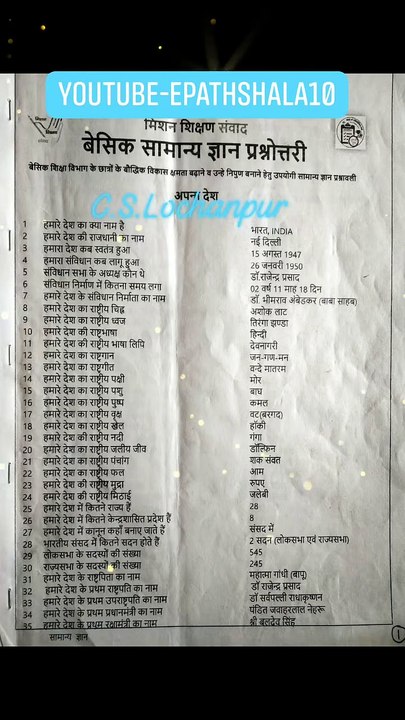 YOUTUBE-EPATHSHALA10
मिशन शिक्षण संवाद
बेसिक सामान्य ज्ञान प्रश्नोत्तरी
बेसिक शिक्षा विभाग के छात्रों के बौद्धिक विकास क्षमता बढ़ाने व उन्हे निपुण बनाने हेतु उपयोगी सामान्य ज्ञान प्रश्नावली
अपना देश
G.S.Lochanpur
1 हमारे देश का क्या नाम है भारत, INDIA
2 हमारे देश की राजधानी का नाम नई दिल्ली
3 हमारा देश कब स्वतंत्र हुआ 15 अगस्त 1947
4 हमारा संविधान कब लागू हुआ 26 जनवरी 1950
5 संविधान सभा के अध्यक्ष कौन थे डॉ.राजेन्द्र प्रसाद
6 संविधान निर्माण में कितना समय लगा 02 वर्ष 11 माह 18 दिन
7 हमारे देश के संविधान निर्माता का नाम डॉ. भीमराव अंबेडकर (बाबा साहब)
8 हमारे देश का राष्ट्रीय चिह्न अशोक लाट
9 हमारे देश का राष्ट्रीय ध्वज तिरंगा झण्डा
10 हमारे देश की राष्ट्रभाषा हिन्दी
11 हमारे देश की राष्ट्रीय भाषा लिपि देवनागरी
12 हमारे देश का राष्ट्रगान जन-गण-मन
13 हमारे देश का राष्ट्रगीत वन्दे मातरम
14 हमारे देश का राष्ट्रीय पक्षी मोर
15 हमारे देश का राष्ट्रीय पशु बाघ
16 हमारे देश का राष्ट्रीय पुष्प कमल
17 हमारे देश का राष्ट्रीय वृक्ष वट(बरगद)
18 हमारे देश का राष्ट्रीय खेल हॉकी
19 हमारे देश की राष्ट्रीय नदी गंगा
20 हमारे देश का राष्ट्रीय जलीय जीव डॉल्फिन
21 हमारे देश का राष्ट्रीय पंचांग शक संवत
22 हमारे देश का राष्ट्रीय फल आम
23 हमारे देश की राष्ट्रीय मुद्रा रुपए
24 हमारे देश की राष्ट्रीय मिठाई जलेबी
25 हमारे देश में कितने राज्य हैं 28
26 हमारे देश में कितने केन्द्रशासित प्रदेश हैं 8
27 हमारे देश में कानून कहाँ बनाए जाते हैं संसद में
28 भारतीय संसद में कितने सदन होते हैं 2 सदन (लोकसभा एवं राज्यसभा)
29 लोकसभा के सदस्यों की संख्या 545
30 राज्यसभा के सदस्यों की संख्या 245
31 हमारे देश के राष्ट्रपिता का नाम महात्मा गांधी (बापू)
32 हमारे देश के प्रथम राष्ट्रपति का नाम डॉ राजेन्द्र प्रसाद
33 हमारे देश के प्रथम उपराष्ट्रपति का नाम डॉ सर्वपल्ली राधाकृष्णन
34 हमारे देश के प्रथम प्रधानमंत्री का नाम पंडित जवाहरलाल नेहरू
35 हमारे देश के प्रथम रक्षामंत्री का नाम श्री बलदेव सिंह
सामान्य ज्ञान 1